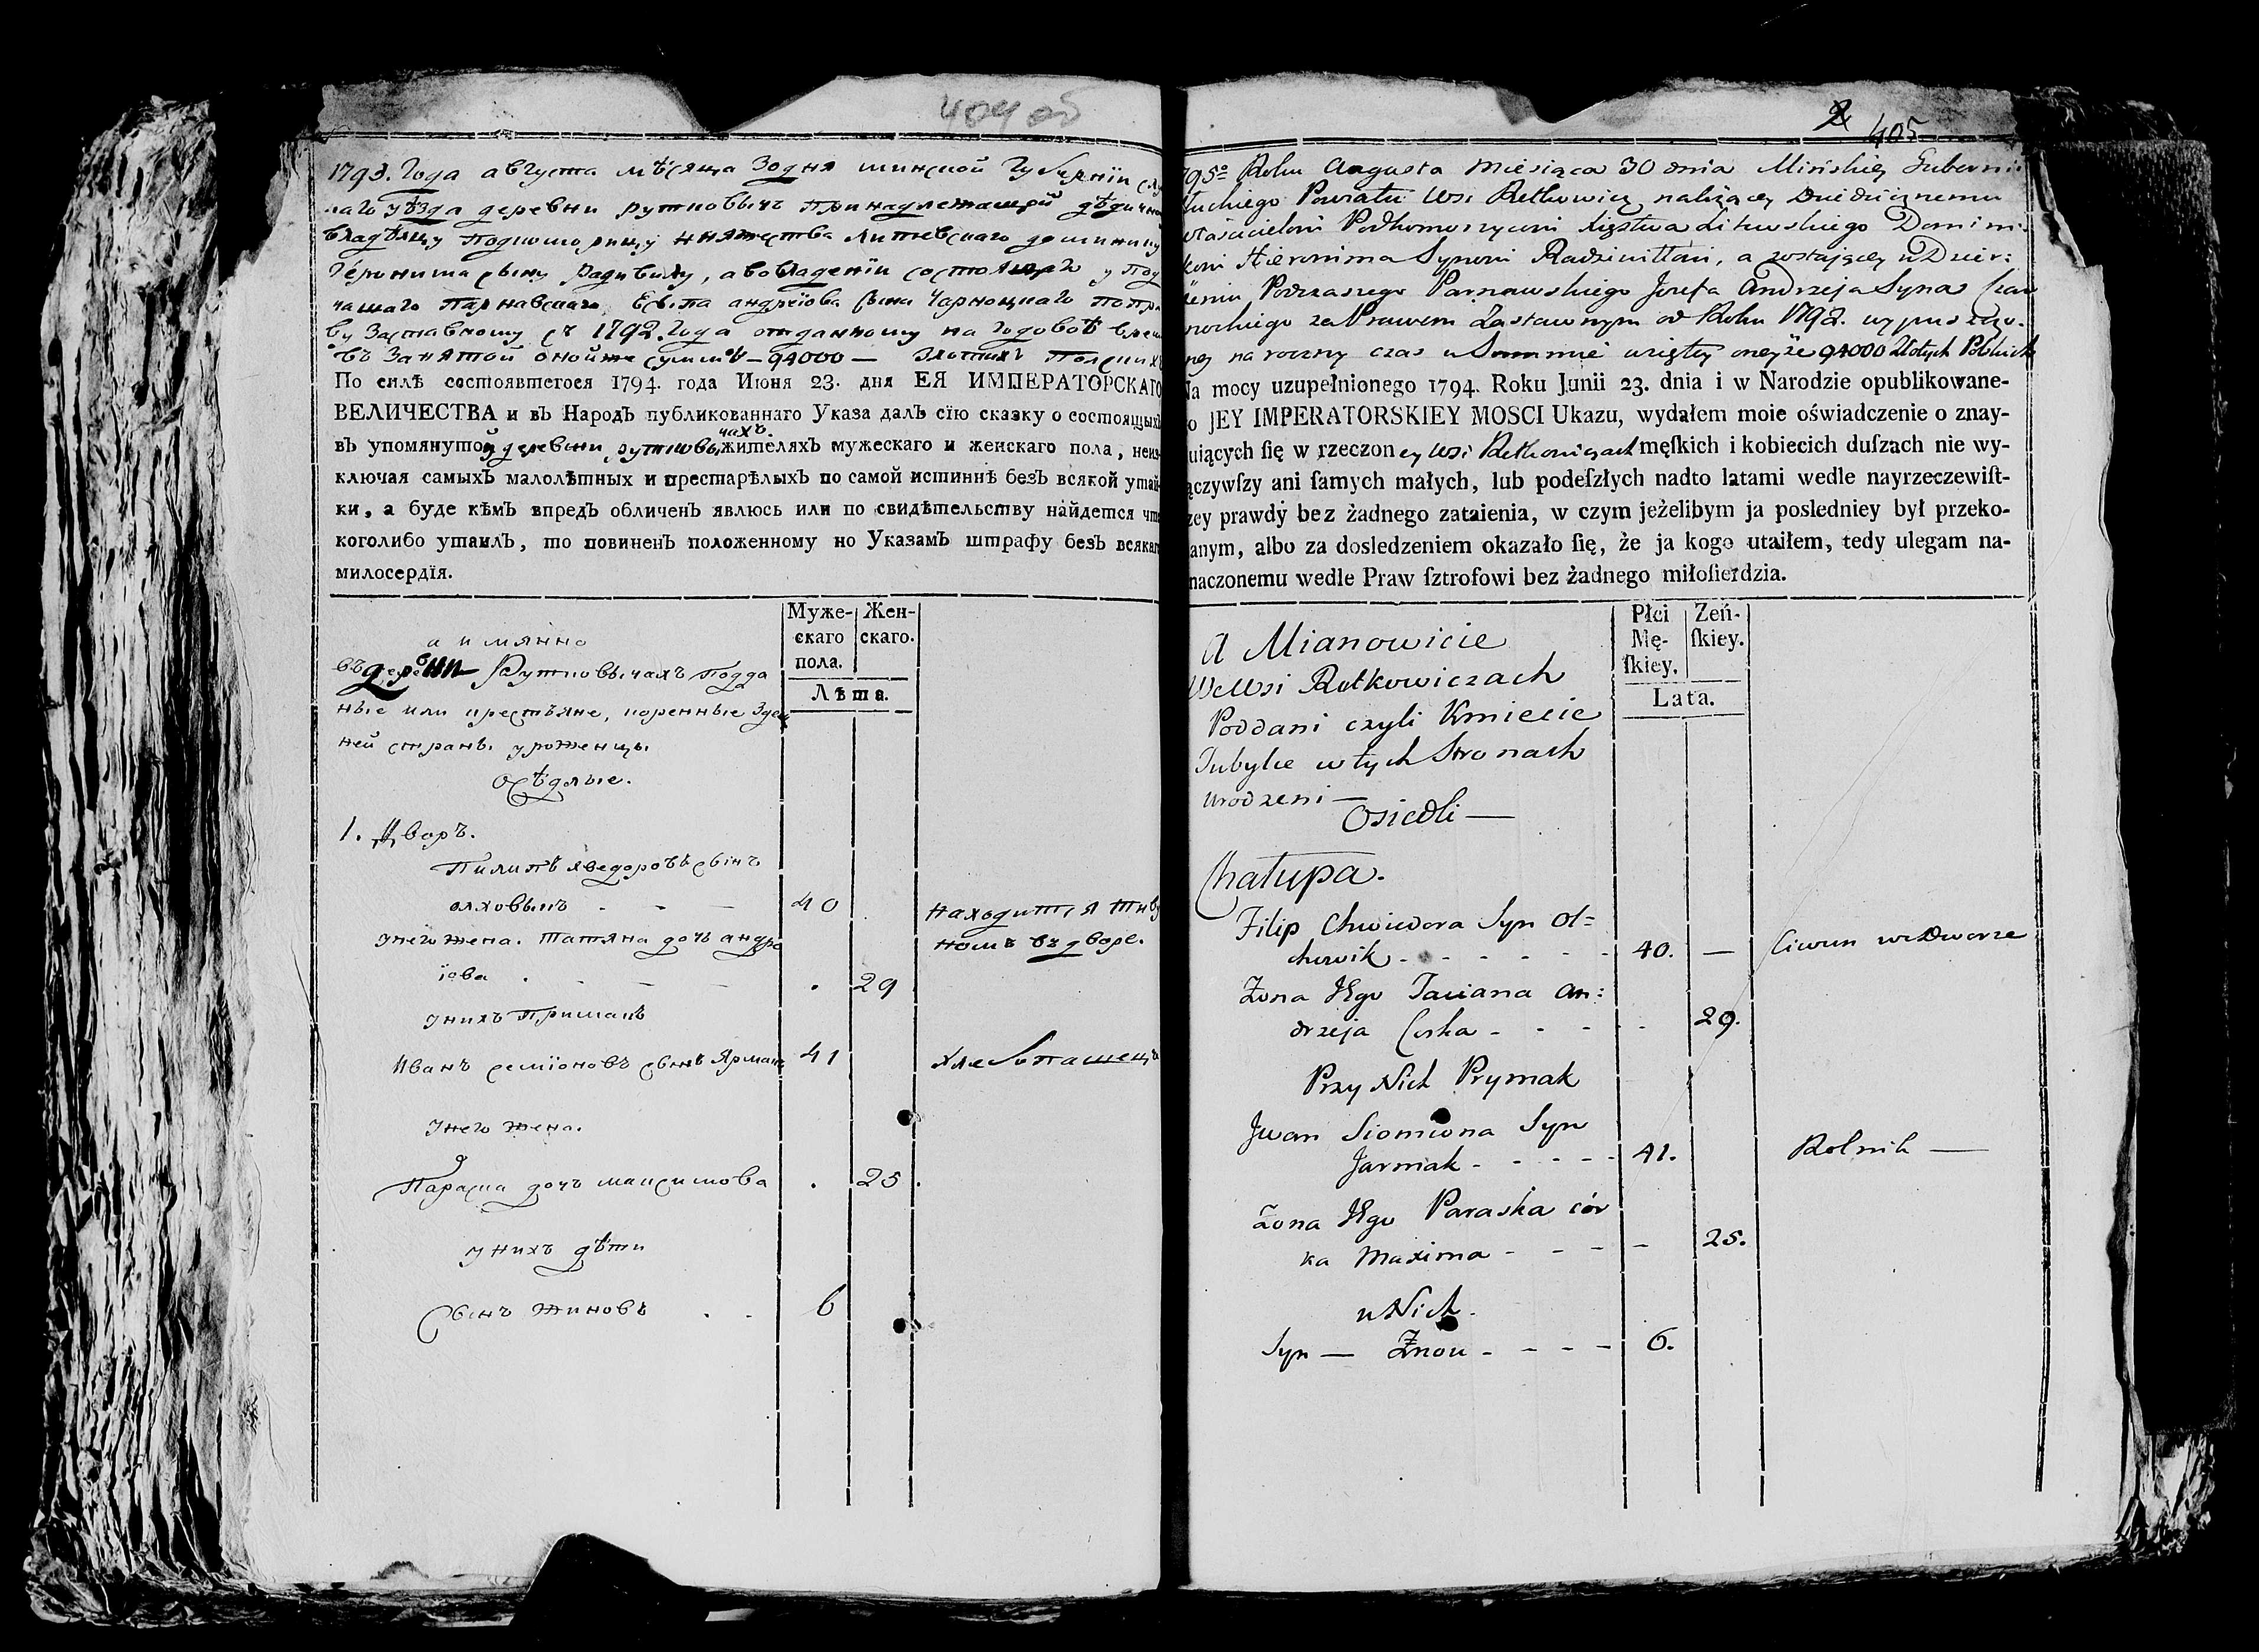 404 об
1795. Года августа мѣсяца 30 дня минской Губернїи
наго уѣзда деревни рутковичъ принадлежащей дѣдично
владѣльцу подкоморищу княжества литевскаго доминику
Героними сыну Радивилу, а во владенїи состоящаго у под
чашаго парнавскаго андреїова сына Чарноцкаго по пра
ву заставному съ 1792. Года отданному на годовое
въ занятой оной же суммѣ — 94000 — злотихъ полскихъ
По силѣ состоявшегося 1794. года Июня 23. дня ЕЯ ИМПЕРАТОРСКАГО
ВЕЛИЧЕСТВА и въ Народъ публикованнаго Указа далъ сїю сказку о состоящыхъ
въ упомянутой деревни рутковичахъ жителяхъ мужескаго и женскаго пола, неиз-
ключая самыхъ малолѣтныхъ и престарѣлыхъ по самой истиннѣ безъ всякой утай-
ки, а буде кѣмъ впредъ обличенъ явлюсь или по свидѣтельству найдется что
коголибо утаилъ, то повиненъ положенному но Указамъ штрафу безъ всякаго
милосердїя.
Муже-
скаго
пола.
Жен-
скаго.
Лѣта.
а имянно
въ деревни Рутковичахъ подда
ные или крестьяне, коренные здеш
ней страны уроженцы
осѣдлые.
1. Дворъ.
Пилипъ хведоровъ сынъ
олховикъ - - - 40 находится тиву
у него жена. татяна дочь андре номъ въ дворе.
їова . - - - . 29
у нихъ примакъ
Иванъ семїоновъ сынъ Ярмак 41 хлебопашецъ
у него жена.
Параска дочъ максимова . 25.
у нихъ дѣти
сынъ жиновъ . - 6
2
405
795o Roku Augusta Miesiąca 30 dnia Mińskiey Gubernii
łuckiego Powiatu Wsi Retkowicz należącey Dziedzicznemu
właścicielowi Podkomorzycowi Xięstwa Litewskiego Domini-
kowi Hieronima Synowi Radziwiłłowi, a zostającey w Dzier:
żeniu Podczaszego Parnawskiego Jozefa Andrzeja Syna Czar
nockiego za Prawem Zastawnym od Roku 1792. wypuszczo-
ney na roczny czas w Summie wziętey oneyże 94000 Złotych Polskich
Na mocy uzupełnionego 1794. Roku Junii 23. dnia i w Narodzie opublikowane-
o JEY IMPERATORSKIEY MOSCI Ukazu, wydałem moie oświadczenie o znay-
uiących ſię w rzeczoney Wsi Retkowiczach męſkich i kobiecich duſzach nie wy-
ączywſzy ani ſamych małych, lub podeſzłych nadto latami wedle nayrzeczewiſt-
zey prawdy bez żadnego zataienia, w czym jeżelibym ja posledniey był przeko-
anym, albo za dosledzeniem okazało ſię, że ja kogo utaiłem, tedy ulegam na-
naczonemu wedle Praw ſztrofowi bez żadnego miłoſierdzia.
Płci
Mę-
ſkiey.
Zeń-
ſkiey.
Lata.
A Mianowicie
We Wsi Rotkowiczach
Poddani czyli Kmiecie
Tubylce w tych Stronach
urodzeni —
Osiedli —
Chałupa.
Filip Chwiedora Syn Ol=
chowik - - - - - - 40. — Ciwun we Dworze
Żona Jego Taciana An:
drzeja Corka - - - - 29.
Przy Nich Prymak
Jwan Siomiona Syn
Jarmak - - - - - 41. Rolnik —
Żona Jego Paraska cór
ka Maxima - - - - 25.
u Nich.
Syn — Żnou - - - - 6.